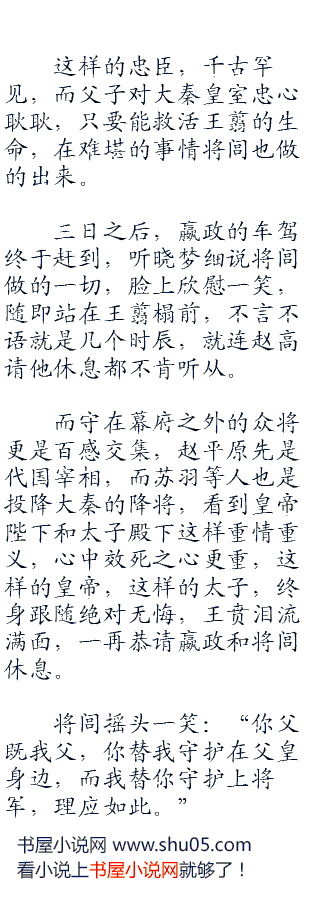 这样的忠臣，千古罕
见，而父子对大秦皇室忠心
耿耿，只要能救活王翦的生
命，在难堪的事情将闾也做
的出来。
三日之后，嬴政的车驾
终于赶到，听晓梦细说将闾
做的一切，脸上欣慰一笑，
随即站在王翦榻前，不言不
语就是几个时辰，就连赵高
请他休息都不肯听从。
而守在幕府之外的众将
更是百感交集，赵平原先是
代国宰相，而苏羽等人也是
投降大秦的降将，看到皇帝
陛下和太子殿下这样重情重
义，心中效死之心更重，这
样的皇帝，这样的太子，终
身跟随绝对无悔，王贲泪流
满面，一再恭请嬴政和将闾
休息。
将闾摇头一笑：“你父
既我父，你替我守护在父皇
身边，而我替你守护上将
军，理应如此。”
书屋小说网 www.shu05.com
看小说上书屋小说网就够了！